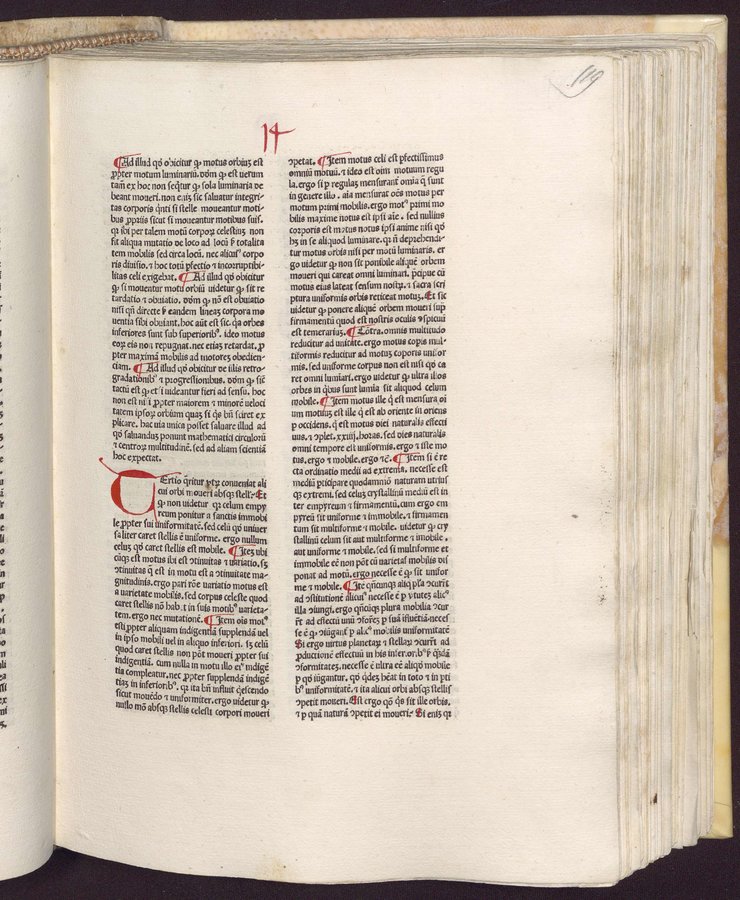 119
14
¶Ad illud qđ obicitur ꝙ motus orbiuȝ est
ꝓpter motum luminariū. dōm ꝙ est uerum
tam̄ ex hoc non seq̄tur ꝙ sola luminaria de
beant moueri. non eniȝ sic saluatur integri-
tas corporis q̄nti si stelle moueantur moti-
bus ꝓpriis sicut si moueantur motibus suis.
qꝛ ibi per talem motū corpoꝝ celestiuȝ non
fit aliqua mutatio de loco ad locū ẜ totalita
tem mobilis sed circa locū. nec alicuiꝰ corpo
ris diuisio. ⁊ hoc totū ꝑfectio ⁊ incorruptibi-
litas celi exigebat. ¶Ad illud qđ obicitur
ꝙ si mouentur motu orbiū uidetur ꝙ sit re
tardatio ⁊ obuiatio. dōm ꝙ nō est obuiatio
nisi qn̄ directe ẜ eandem lineaȝ corpora mo
uentia sibi obuiant. hoc aūt est sic. qꝛ orbes
inferiores sunt sub superioribꝰ. ideo motus
eoꝝ eis non repugnat. nec etiaȝ retardat. ꝓ
pter maximā mobilis ad motores obedien-
ciam. ¶Ad illud qđ obicitur de illis retro-
gradationibꝰ ⁊ progressionibus. dōm ꝙ sic̄
tactū est ꝙ etsi uideantur fieri ad sensu. hoc
non est nisi ꝓpter maiorem ⁊ minorē veloci
tatem ipsoꝝ orbium quas si q̄s bn̄ sciret ex
plicare. hac uia unica posset saluare illud ad
qđ saluandus ponunt mathematici circuloꝝ
⁊ centroꝝ multitudinē. sed ad aliam scientiā
hoc expectat.
TErtio q̄ritur vtꝝ conueniat ali
cui orbi moueri absqȝ stell'. Et
ꝙ non uidetur qꝛ celum empy
reum ponitur a sanctis immobi
le ꝓpter sui uniformitatē. sed celū qđ uniuer
saliter caret stellis ē uniforme. ergo nullum
celuȝ qđ caret stellis est mobile. ¶Iteȝ ubi
cūqȝ est motus ibi est ↄtinuitas ⁊ uariatio. sȝ
ↄtinuitas q̄ est in motu est a ↄtinuitate ma-
gnitudinis. ergo pari rōne variatio motus est
a varietate mobilis. sed corpus celeste quod
caret stellis nō habet in suis motibꝰ varieta-
tem. ergo nec mutationē. ¶Item ois motꝰ
est ꝓpter aliquam indigentiā supplendā uel
in ipso mobili uel in aliquo inferiori. sȝ celū
quod caret stellis non pōt moueri ꝓpter sui
indigentiā. cum nulla in motu illo eiꝰ indigē
tia compleatur. nec ꝓpter supplendā indigē
tiaȝ in inferioribꝰ. qꝛ ita bn̄ influit q̄escendo
sicut mouēdo ⁊ uniformiter. ergo uidetur ꝙ
nullo mō absqȝ stellis celesti corpori moueri
ↄpetat. ¶Item motus celi est ꝑfectissimus
omniū motuū. ⁊ ideo est oim̄ motuum regu
la. ergo si ꝑ regulaȝ mensurant̄ omia q̄ sunt
in genere illo. aīa mensurat oēs motus per
motum primi mobilis. ergo motꝰ primi mo
bilis maxime notus est ipsi aīe. sed nullius
corporis est motus notus ipsi anime nisi qđ
hȝ in se aliquod luminare. qꝛ n̄ deprehendi-
tur motus orbis nisi per motū luminaris. er
go uidetur ꝙ non sit ponibile aliquē orbem
moueri qui careat omni luminari. p̄cipue cū
motus eius lateat sensum nostrꝝ. ⁊ sacra scri
ptura uniformis orbis reticeat motuȝ. Et sic
uidetur ꝙ ponere aliquē orbem moueri sup̄
firmamentū quod est nostris oculis ↄspicuū
est temerariuȝ. ¶Cōtra. omnis multitudo
reducitur ad unitatē. ergo motus copis mul-
tiformis reducitur ad motuȝ coporis unifor
mis. sed uniforme corpus non est nisi qđ ca
ret omni luminari. ergo uidetur ꝙ ultra illos
orbes in q̄bus sunt lumīa sit aliquod celum
mobile. ¶Item motus ille q̄ est mensura oī
um motuuȝ est ille q̄ est ab oriente in oriens
ꝑ occidens. q̄ est motus diei naturalis effecti
uus. ⁊ ↄplet̄. xxiiij. horas. sed dies naturalis
omni tempore est uniformis. ergo ⁊ iste mo
tus. ergo ⁊ mobile. ergo ⁊c̄. ¶Item si ē re
cta ordinatio medii ad extrema. necesse est
mediū ꝑticipare quodammō naturam utrius
qȝ extremi. sed celuȝ crystallinū mediū est in
ter empyreum ⁊ firmamentū. cum ergo em
pyreū sit uniforme ⁊ immobile. ⁊ firmamen
tum sit multiforme ⁊ mobile. uidetur ꝙ cry
stallinū celum sit aut multiforme ⁊ imobile.
aut uniforme ⁊ mobile. sed si multiforme et
immobile eē non pōt cū varietas mobilis dis
ponat ad motū. ergo necesse ē ꝙ sit unifor
me ⁊ mobile. ¶Itē qn̄cunqȝ aliq̄ pl'a ↄcurrt̄
ad ↄstitutionē alicuiꝰ necesse ē ꝑ ꝟtuteȝ alicꝰ
illa ↄiungi. ergo qn̄cūqȝ plura mobilia ↄcur
rt̄ ad effectū unū ↄforeȝ ꝑ suā īfluētiā neces
se ē ꝙ ↄiugant̄ ꝑ alicꝰ mobilis uniformitatē
Si ergo virtus planetaꝝ ⁊ stellaꝝ ↄcurrt̄ ad
ꝓductionē effectuū in his inferioribꝰ ꝑ q̄ndā
ↄformitateȝ. necesse ē ultra eē aliqđ mobile
ꝑ qđ iūgantur. qđ q̄deȝ hēat in toto ⁊ in pti
bꝰ uniformitatē. ⁊ ita alicui orbi absqȝ stellis
ↄpetit moueri. Est ergo qō q̄s sit ille orbis.
⁊ ꝑ quā naturā ↄpetit ei moueri. Si eniȝ qꝛ